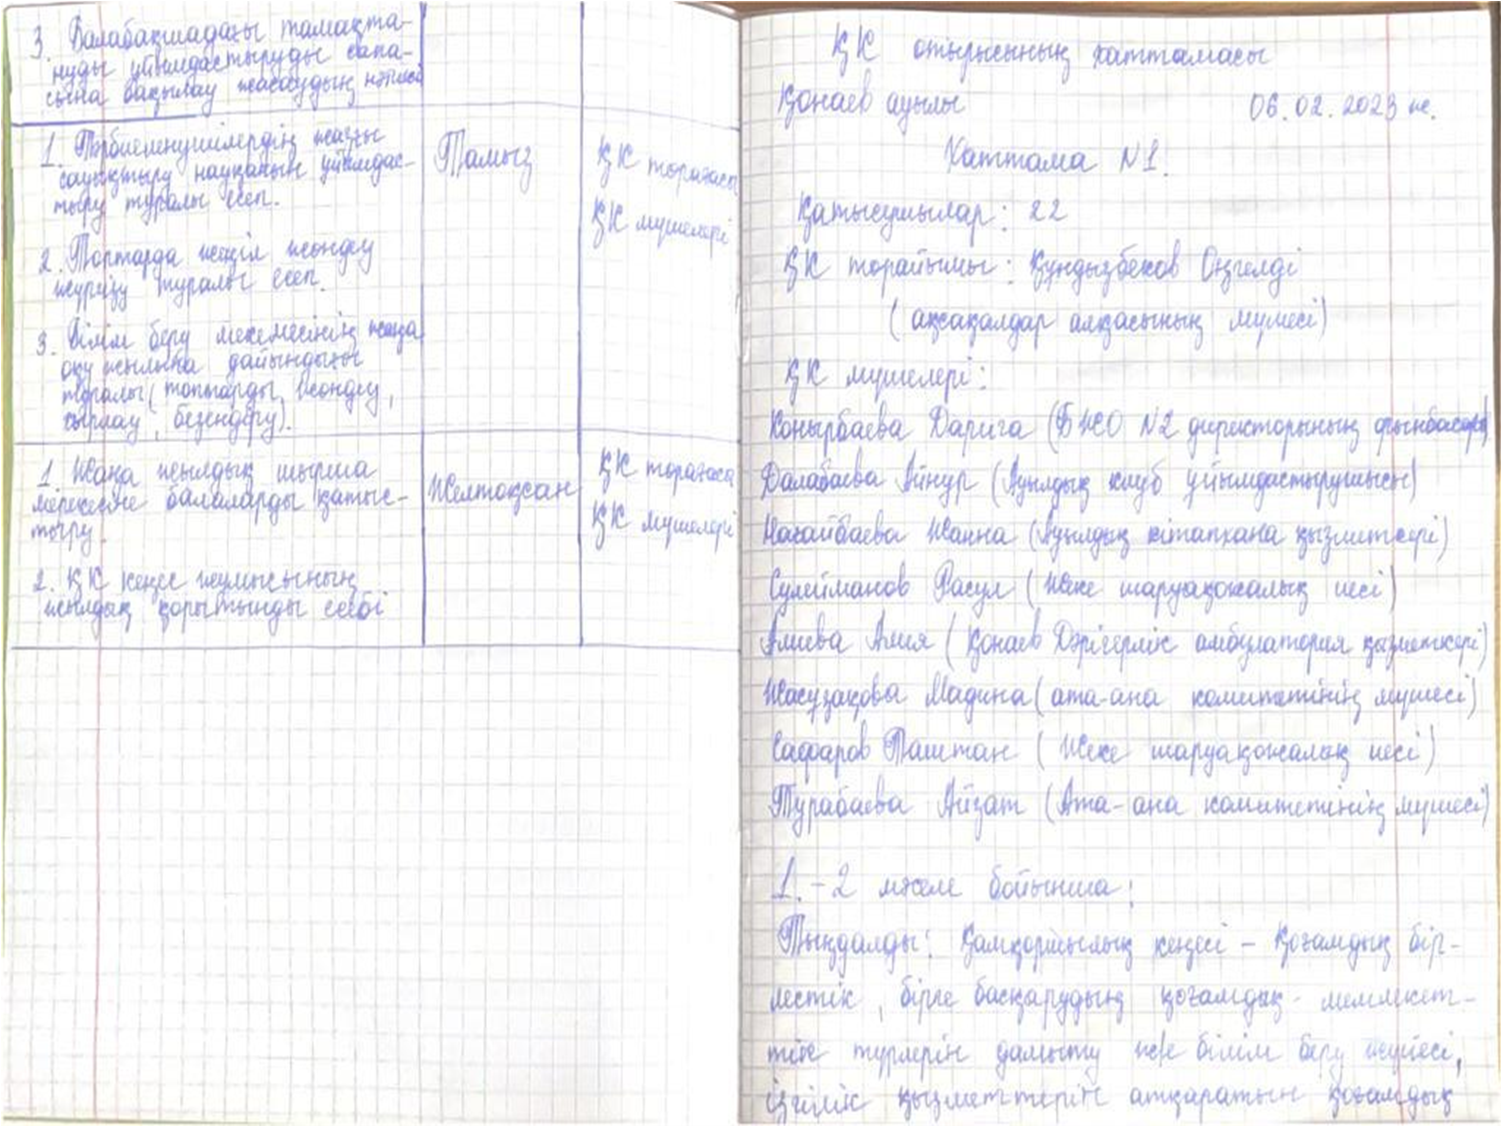 3. Балабақшадағы тамақта-
нуды ұйымдастыруды сапа-
сына бақылау жасаудың нәтижесі
1. Тәрбиеленушілердің жазғы
сауықтыру науқанын ұйымдас-
тыру туралы есеп.
2. Топтарда жеңіл жөндеу
жүргізу туралы есеп.
3. Білім беру мекемесінің жаңа
оқу жылына дайындығы
туралы (топтарды жөндеу,
сырлау, безендіру).
Тамыз
ҚК төрағасы
ҚК мүшелері
1. Жаңа жылдық шырша
мерекесіне балаларды қатыс-
тыру.
2. ҚК кеңес жұмысының
жылдық қорытынды есебі
Желтоқсан
ҚК төрағасы
ҚК мүшелері
ҚК отырысының хаттамасы
Қонаев ауылы 06.02.2023 ж.
Хаттама N1.
Қатысушылар: 22
ҚК төрайымы: Құндызбеков Өңгелді
(ақсақалдар алқасының мүшесі)
ҚК мүшелері:
Конырбаева Дариға (БЖО N2 директорының орынбасары)
Далабаева Айнур (Ауылдық клуб ұйымдастырушысы)
Нағайбаева Жанна (Ауылдық кітапхана қызметкері)
Сулейманов Расул (Жеке шаруақожалық иесі)
Алиева Алия (Қонаев Дәрігерлік амбулатория қызметкері)
Жасузақова Мадина (ата-ана комитетінің мүшесі)
Сафаров Паштан (Жеке шаруақожалық иесі)
Турабаева Айзат (Ата-ана комитетінің мүшесі)
1.-2 мәселе бойынша:
Тыңдалды: Қамқоршылық кеңесі - қоғамдық бір-
лестік, бірге басқарудың қоғамдық-мемлекет-
тік түрлерін дамыту және білім беру жүйесі,
ізгілік қызметтерін атқаратын қоғамдық